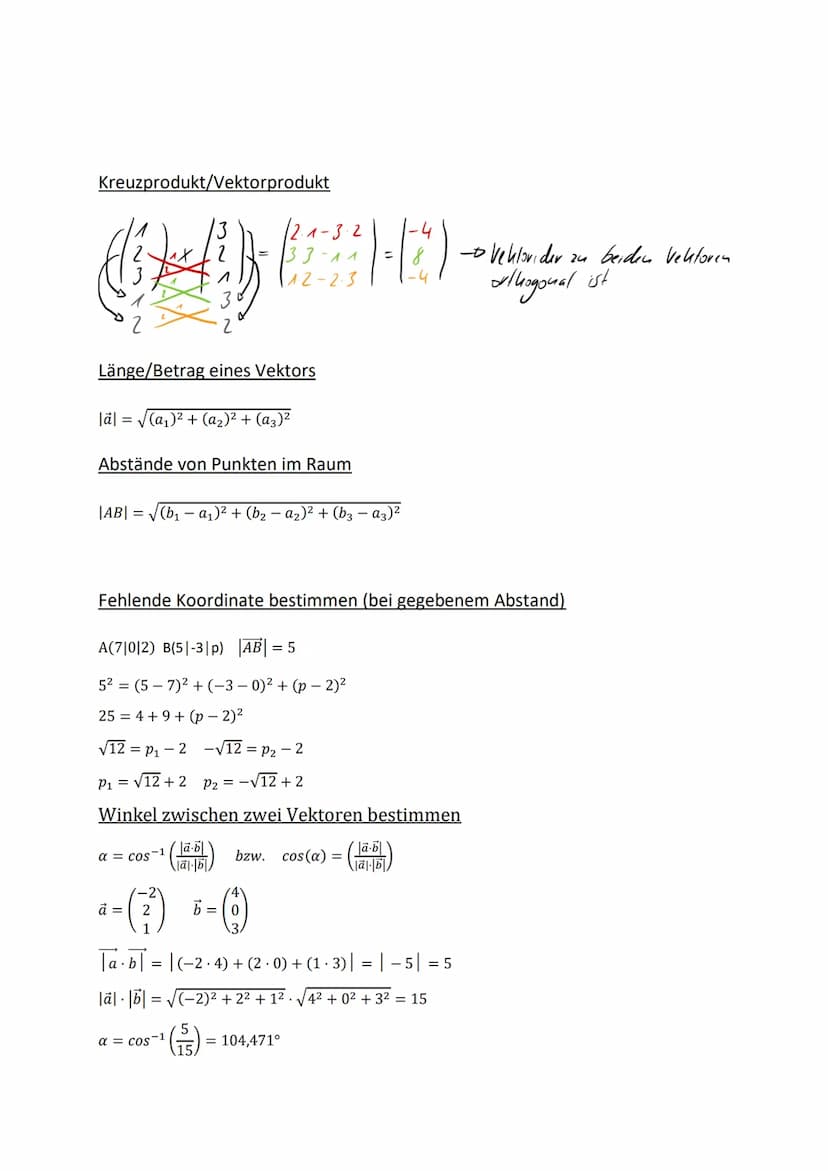 Kreuzprodukt/Vektorprodukt
(1 2 3) × (3 2 1) = (2·1-3·2 3 3-1 1 1 2-2·3) = (-4 8 -4) → Vektor der zu beiden Vektoren
1 3 orthogonal ist
2 2
Länge/Betrag eines Vektors
|a⃗| = √((a₁)² + (a₂)² + (a₃)²)
Abstände von Punkten im Raum
|AB| = √((b₁ − a₁)² + (b₂ − a₂)² + (b₃ − a₃)²)
Fehlende Koordinate bestimmen (bei gegebenem Abstand)
A(7|0|2) B(5|-3|p) |AB⃗| = 5
5² = (5 − 7)² + (−3 − 0)² + (p − 2)²
25 = 4 + 9 + (p − 2)²
√12 = p₁ − 2 −√12 = p₂ − 2
p₁ = √12 + 2 p₂ = −√12 + 2
Winkel zwischen zwei Vektoren bestimmen
α = cos⁻¹(|a⃗·b⃗| / |a⃗|·|b⃗|) bzw. cos(α) = (|a⃗·b⃗| / |a⃗|·|b⃗|)
a⃗ = (−2 2 1) b⃗ = (4 0 3)
|a⃗ · b⃗| = |(−2 · 4) + (2 · 0) + (1 · 3)| = | − 5| = 5
|a⃗| · |b⃗| = √((−2)² + 2² + 1²) · √(4² + 0² + 3²) = 15
α = cos⁻¹(5/15) = 104,471°